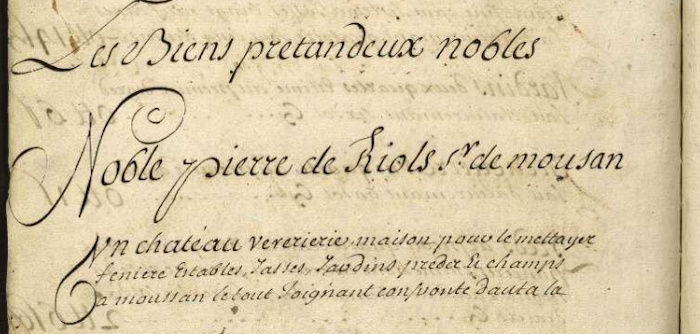 Les Biens pretandeux nobles
Noble pierre de Riols sr de mousan
Un chatéau vererierie, maison pour le mettayer
feniere Estables, Jasses, Jardins predz Et champs
a moussan le tout Joignant confronte d'auta la